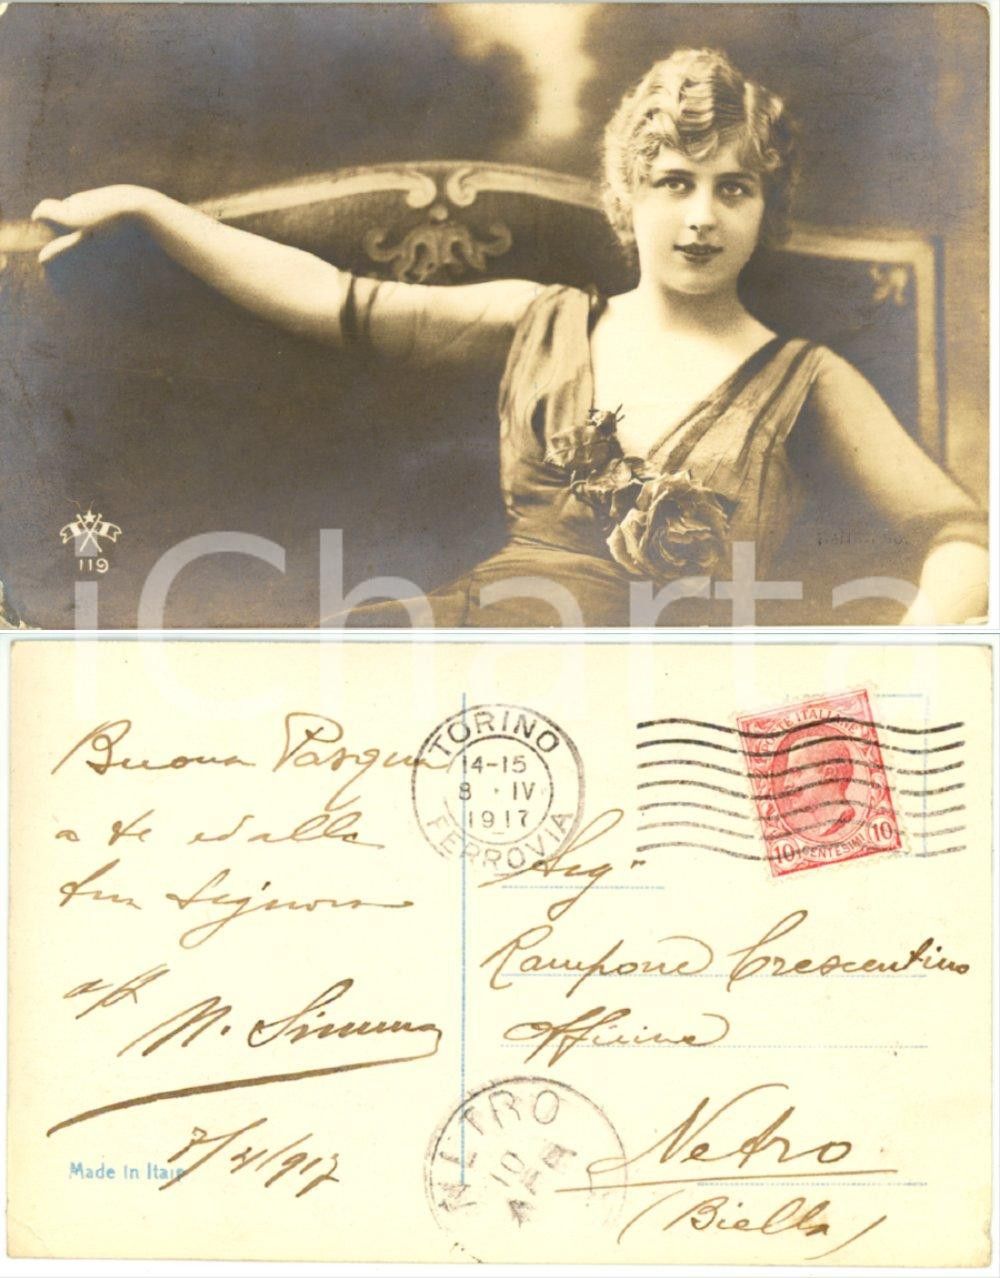 119
iCharta
Buona Pasqua
a te ed alla
tua Signora
aff
N. Simma
7/4/917
Made in Italy
TORINO
14-15
8 · IV
1917
FERROVIA
POSTE ITALIANE
10 CENTESIMI 10
Sig"
Rampone Crescentino
Officine
Netro
(Biella)
NETRO
10
APR